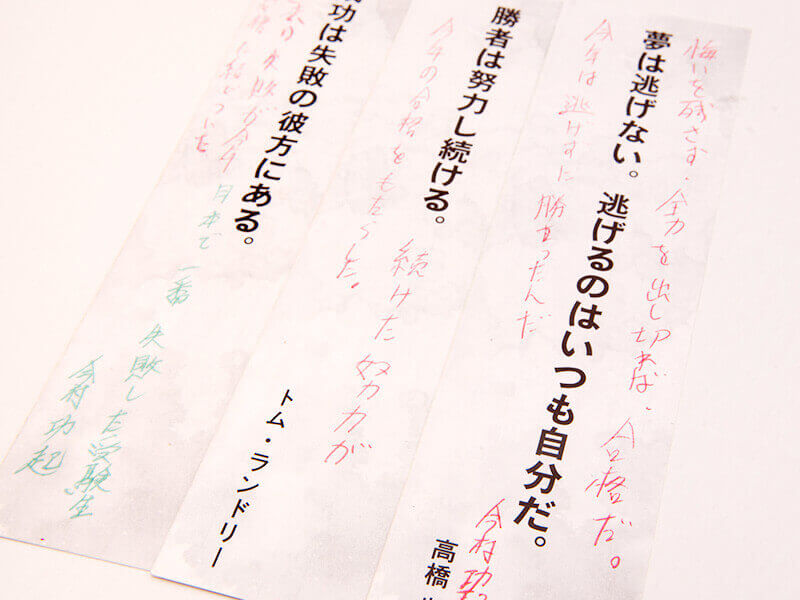 悔いを残さず、全力を出し切れば、合格だ。
夢は逃げない。逃げるのはいつも自分だ。
高橋
今年は逃げずに勝
今村功
勝者は努力し続ける。
トム・ランドリー
続けた努力が
今年の合格をもたらした。
功は失敗の彼方にある。
失敗が今年
日本で一番失敗した受験生
今村功起